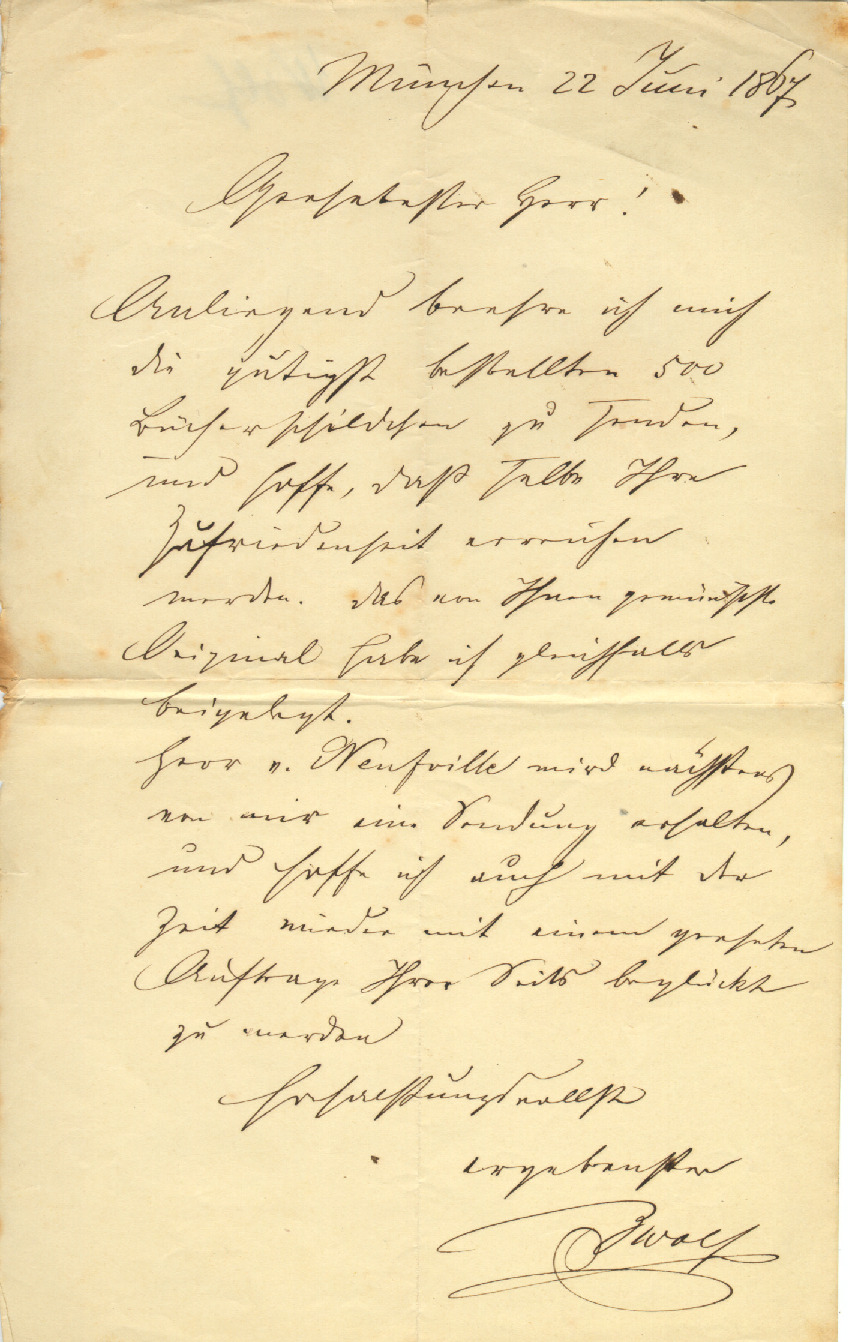 München 22 Juni 1867
Geehrtester Herr!
Anliegend beehre ich mich
die gütigst bestellten 500
Bücherschildchen zu senden,
und hoffe, daß selbe Ihre
Zufriedenheit erreichen
werden. Das von Ihnen gewünschte
Original habe ich gleichfalls
beigelegt.
Herr v. Neufville wird nächstens
von mir eine Sendung erhalten,
und hoffe ich auch mit der
Zeit wieder mit einem geehrten
Auftrage Ihrer Seits beglückt
zu werden
Hochachtungsvollst
ergebenster
Wolf